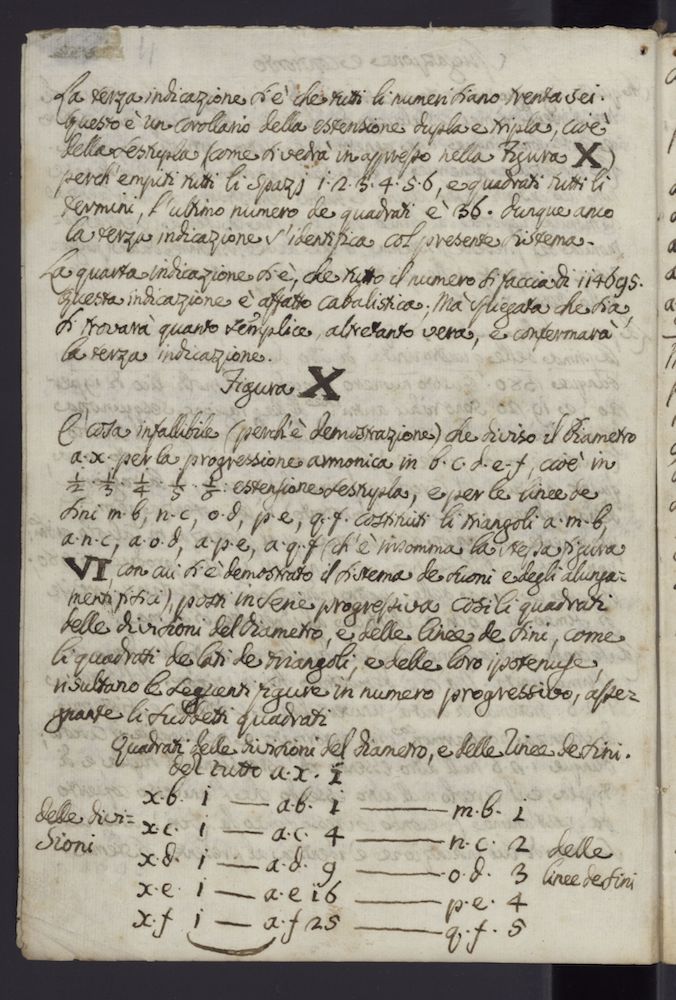 La terza indicazione si è che tutti li numeri siano trenta sei.
Questo è un corollario della estensione dupla e tripla, cioè
della sestupla (come si vedrà in appresso nella Figura X)
perch'empiti tutti li spazj 1·2·3·4·5·6, e quadrati tutti li
termini, l'ultimo numero de quadrati è 36. dunque anco
la terza indicazione s'identifica col presente sistema.
La quarta indicazione si è, che tutto il numero si faccia di 114695.
Questa indicazione è affatto cabalistica; Mà spiegata che sia,
si trovarà quanto semplice, altretanto vera, e confermarà
la terza indicazione.
Figura X
È cosa infallibile (perch'è demostrazione) che diviso il Diametro
a·x· per la progressione armonica in b·c·d·e·f, cioè in
1/2 · 1/3 · 1/4 · 1/5 · 1/6 : estensione sestupla, e per le linee de
sini m·b, n·c, o·d, p·e, q·f· costituiti li triangoli a·m·b,
a·n·c, a·o·d, a·p·e, a·q·f (ch'è insomma la stessa figura
VI, con cui si è demostrato il sistema de suoni e degli alunga=
menti fisici), posti in serie progressiva così li quadrati
delle divisioni del Diametro, e delle linee de sini, come
li quadrati de lati de triangoli, e delle loro ipotenuse,
risultano le seguenti figure in numero progressivo, asse=
gnante li suddetti quadrati
Quadrati delle divisioni del diametro, e delle linee de sini.
del tutto a·x· 1
x·b· 1 — a·b· 1 — m·b· 1
delle divi= x·c· 1 — a·c· 4 — n·c· 2 delle
sioni x·d· 1 — a·d· 9 — o·d· 3 linee de sini
x·e· 1 — a·e 16 — p·e· 4
x·f 1 — a·f 25 — q·f· 5